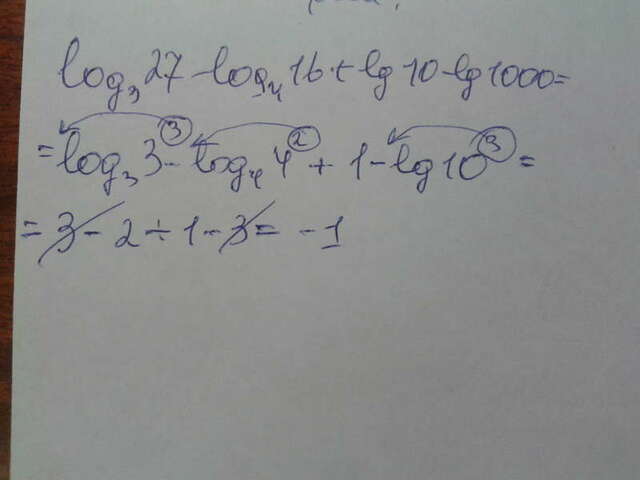 log₃27 - log₄16 + lg10 - lg1000 =
= log₃3³ - log₄4² + 1 - lg10³ =
= 3 - 2 ÷ 1 - 3 = -1